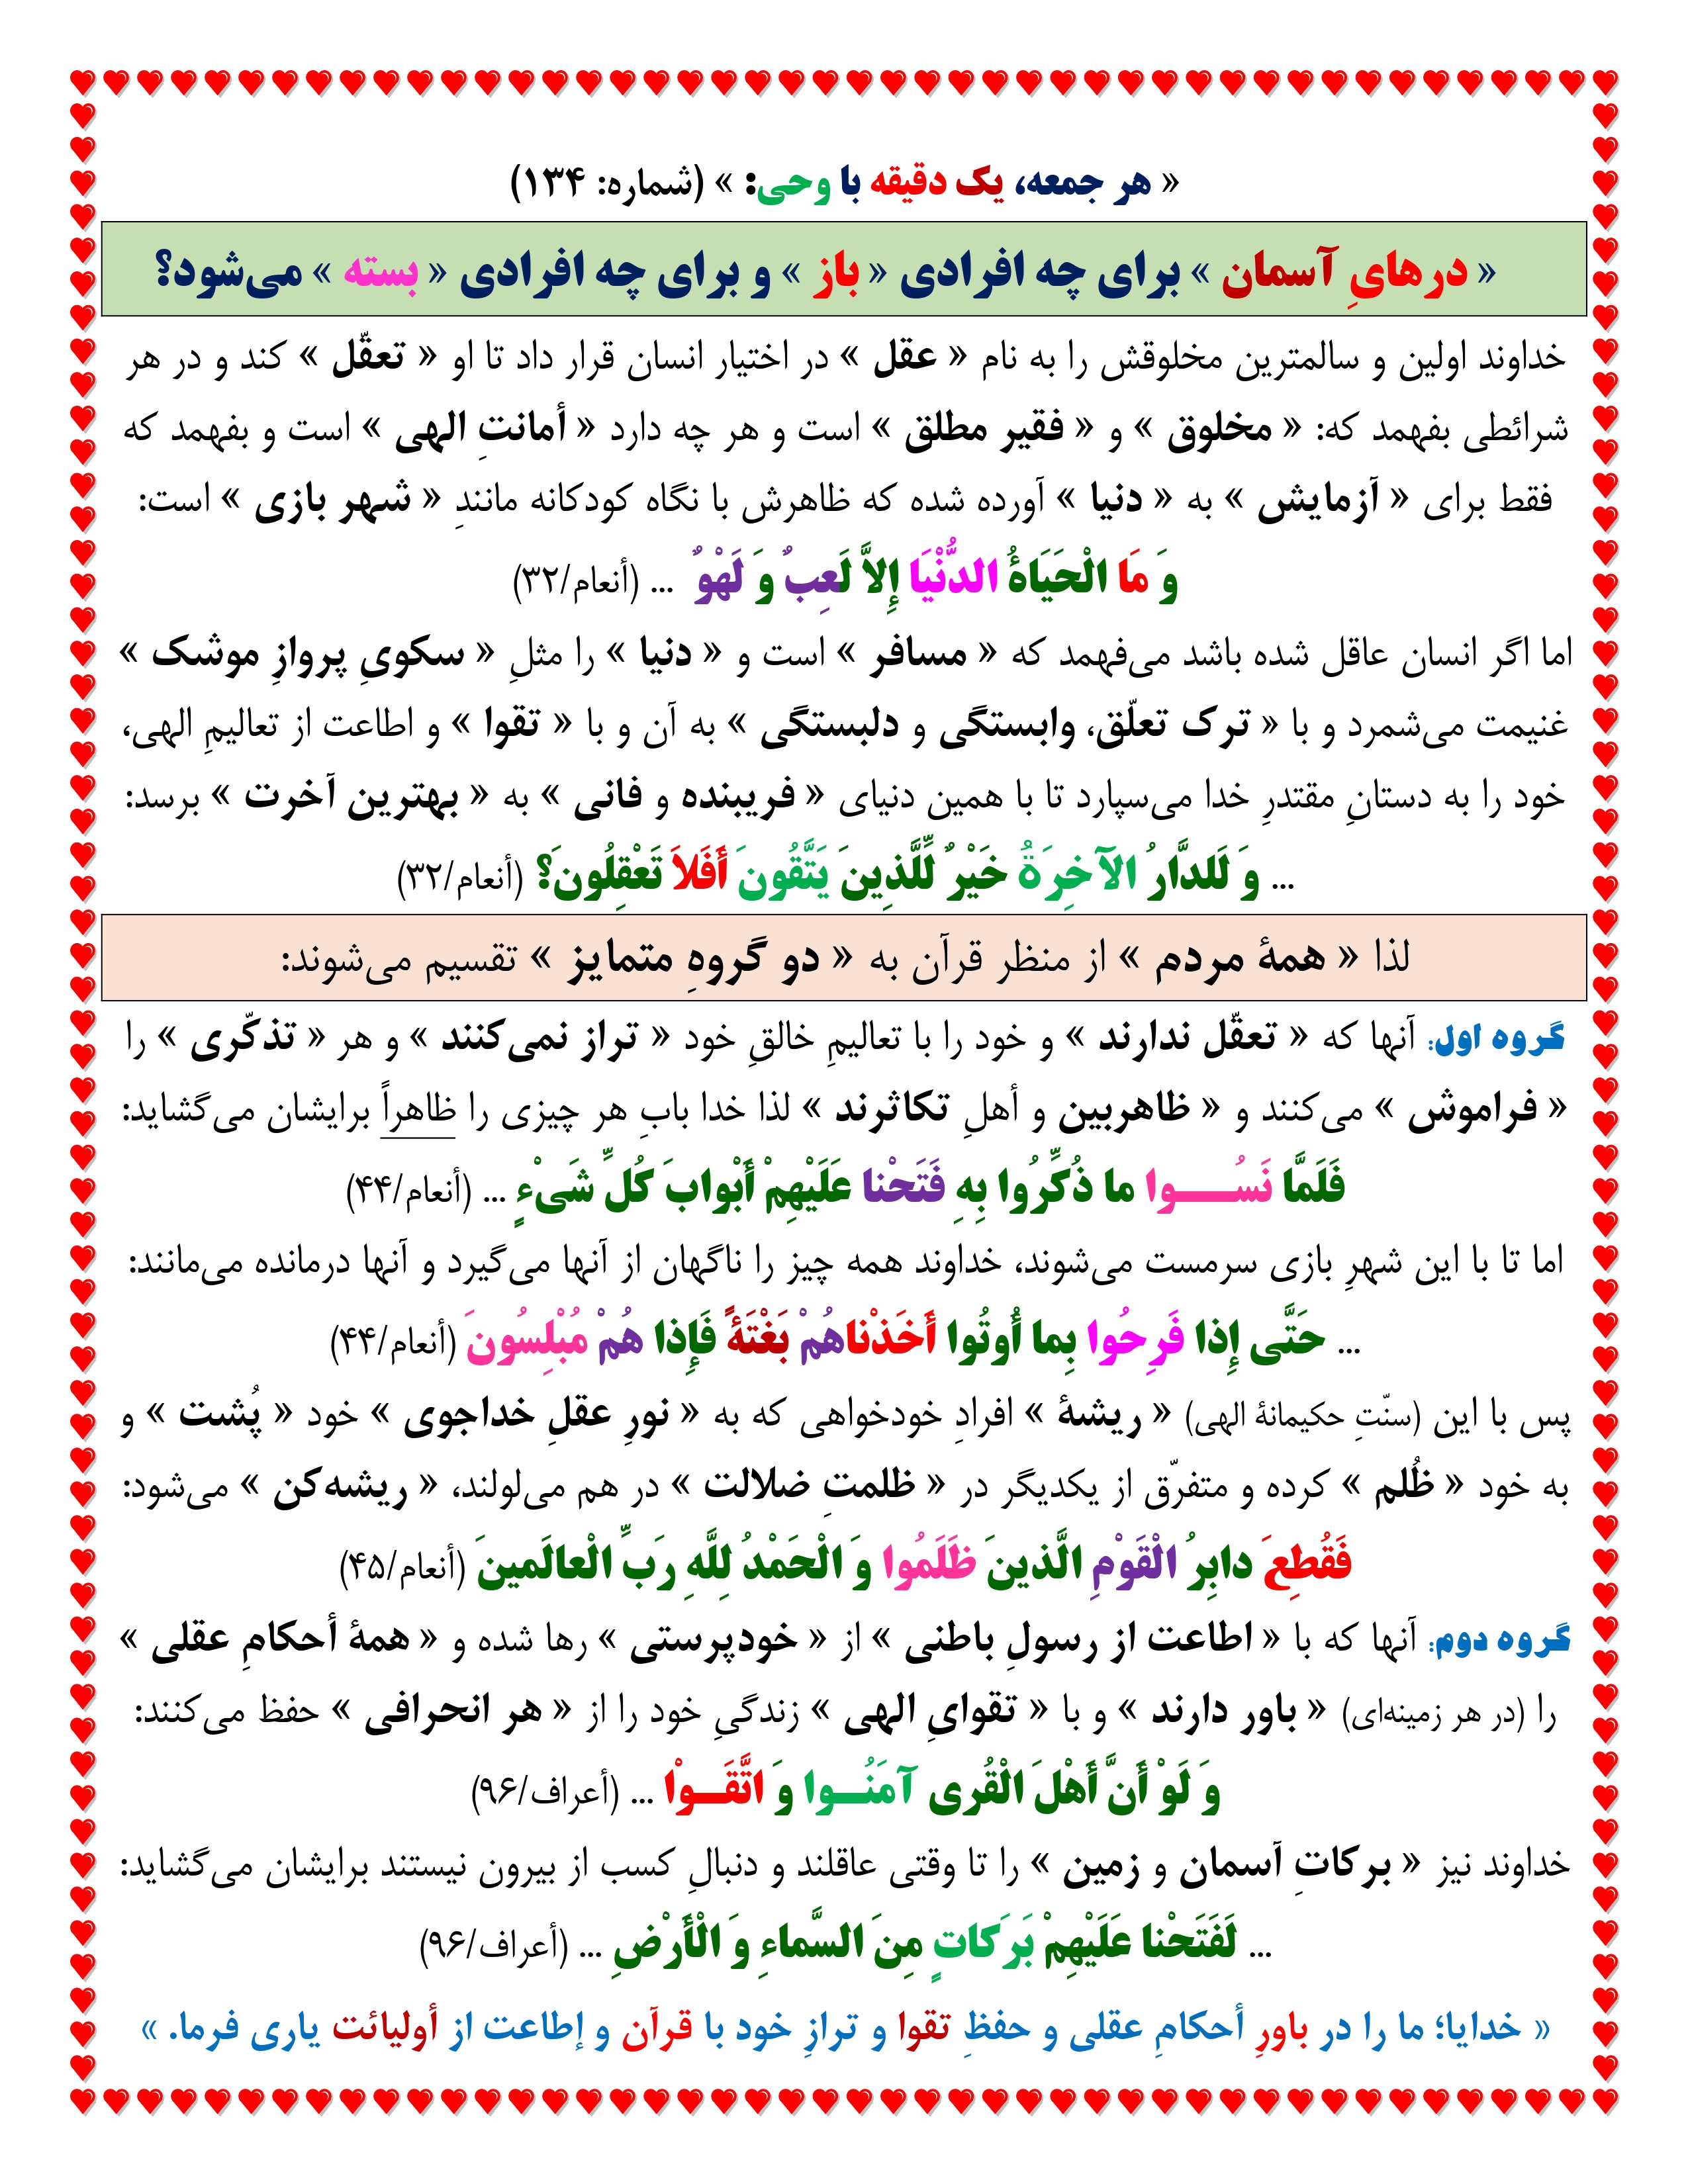 « هر جمعه، یک دقیقه با وحی: » (شماره: ۱۳۴)
« درهایِ آسمان » برای چه افرادی « باز » و برای چه افرادی « بسته » می‌شود؟
خداوند اولین و سالمترین مخلوقش را به نام « عقل » در اختیار انسان قرار داد تا او « تعقّل » کند و در هر
شرائطی بفهمد که: « مخلوق » و « فقیر مطلق » است و هر چه دارد « أمانتِ الهی » است و بفهمد که
فقط برای « آزمایش » به « دنیا » آورده شده که ظاهرش با نگاه کودکانه مانندِ « شهر بازی » است:
وَ مَا الْحَيَاةُ الدُّنْيَا إِلاَّ لَعِبٌ وَ لَهْوٌ ... (أنعام/۳۲)
اما اگر انسان عاقل شده باشد می‌فهمد که « مسافر » است و « دنیا » را مثلِ « سکویِ پروازِ موشک »
غنیمت می‌شمرد و با « ترک تعلّق، وابستگی و دلبستگی » به آن و با « تقوا » و اطاعت از تعالیمِ الهی،
خود را به دستانِ مقتدرِ خدا می‌سپارد تا با همین دنیای « فریبنده و فانی » به « بهترین آخرت » برسد:
... وَ لَلدَّارُ الآخِرَةُ خَيْرٌ لِّلَّذِينَ يَتَّقُونَ أَفَلاَ تَعْقِلُونَ؟ (أنعام/۳۲)
لذا « همۀ مردم » از منظر قرآن به « دو گروهِ متمایز » تقسیم می‌شوند:
گروه اول: آنها که « تعقّل ندارند » و خود را با تعالیمِ خالقِ خود « تراز نمی‌کنند » و هر « تذکّری » را
« فراموش » می‌کنند و « ظاهربین و أهلِ تکاثرند » لذا خدا بابِ هر چیزی را ظاهراً برایشان می‌گشاید:
فَلَمَّا نَسُـــــوا ما ذُكِّرُوا بِهِ فَتَحْنا عَلَيْهِمْ أَبْوابَ كُلِّ شَيْءٍ ... (أنعام/۴۴)
اما تا با این شهرِ بازی سرمست می‌شوند، خداوند همه چیز را ناگهان از آنها می‌گیرد و آنها درمانده می‌مانند:
... حَتَّى إِذا فَرِحُوا بِما أُوتُوا أَخَذْناهُمْ بَغْتَةً فَإِذا هُمْ مُبْلِسُونَ (أنعام/۴۴)
پس با این (سنّتِ حکیمانۀ الهی) « ریشۀ » افرادِ خودخواهی که به « نورِ عقلِ خداجوی » خود « پُشت » و
به خود « ظُلم » کرده و متفرّق از یکدیگر در « ظلمتِ ضلالت » در هم می‌لولند، « ریشه‌کن » می‌شود:
فَقُطِعَ دابِرُ الْقَوْمِ الَّذينَ ظَلَمُوا وَ الْحَمْدُ لِلَّهِ رَبِّ الْعالَمينَ (أنعام/۴۵)
گروه دوم: آنها که با « اطاعت از رسولِ باطنی » از « خودپرستی » رها شده و « همۀ أحکامِ عقلی »
را (در هر زمینه‌ای) « باور دارند » و با « تقوایِ الهی » زندگیِ خود را از « هر انحرافی » حفظ می‌کنند:
وَ لَوْ أَنَّ أَهْلَ الْقُرى آمَنُـــوا وَ اتَّقَـــوْا ... (أعراف/۹۶)
خداوند نیز « برکاتِ آسمان و زمین » را تا وقتی عاقلند و دنبالِ کسب از بیرون نیستند برایشان می‌گشاید:
... لَفَتَحْنا عَلَيْهِمْ بَرَكاتٍ مِنَ السَّماءِ وَ الْأَرْضِ ... (أعراف/۹۶)
« خدایا؛ ما را در باورِ أحکامِ عقلی و حفظِ تقوا و ترازِ خود با قرآن و إطاعت از أولیائت یاری فرما. »